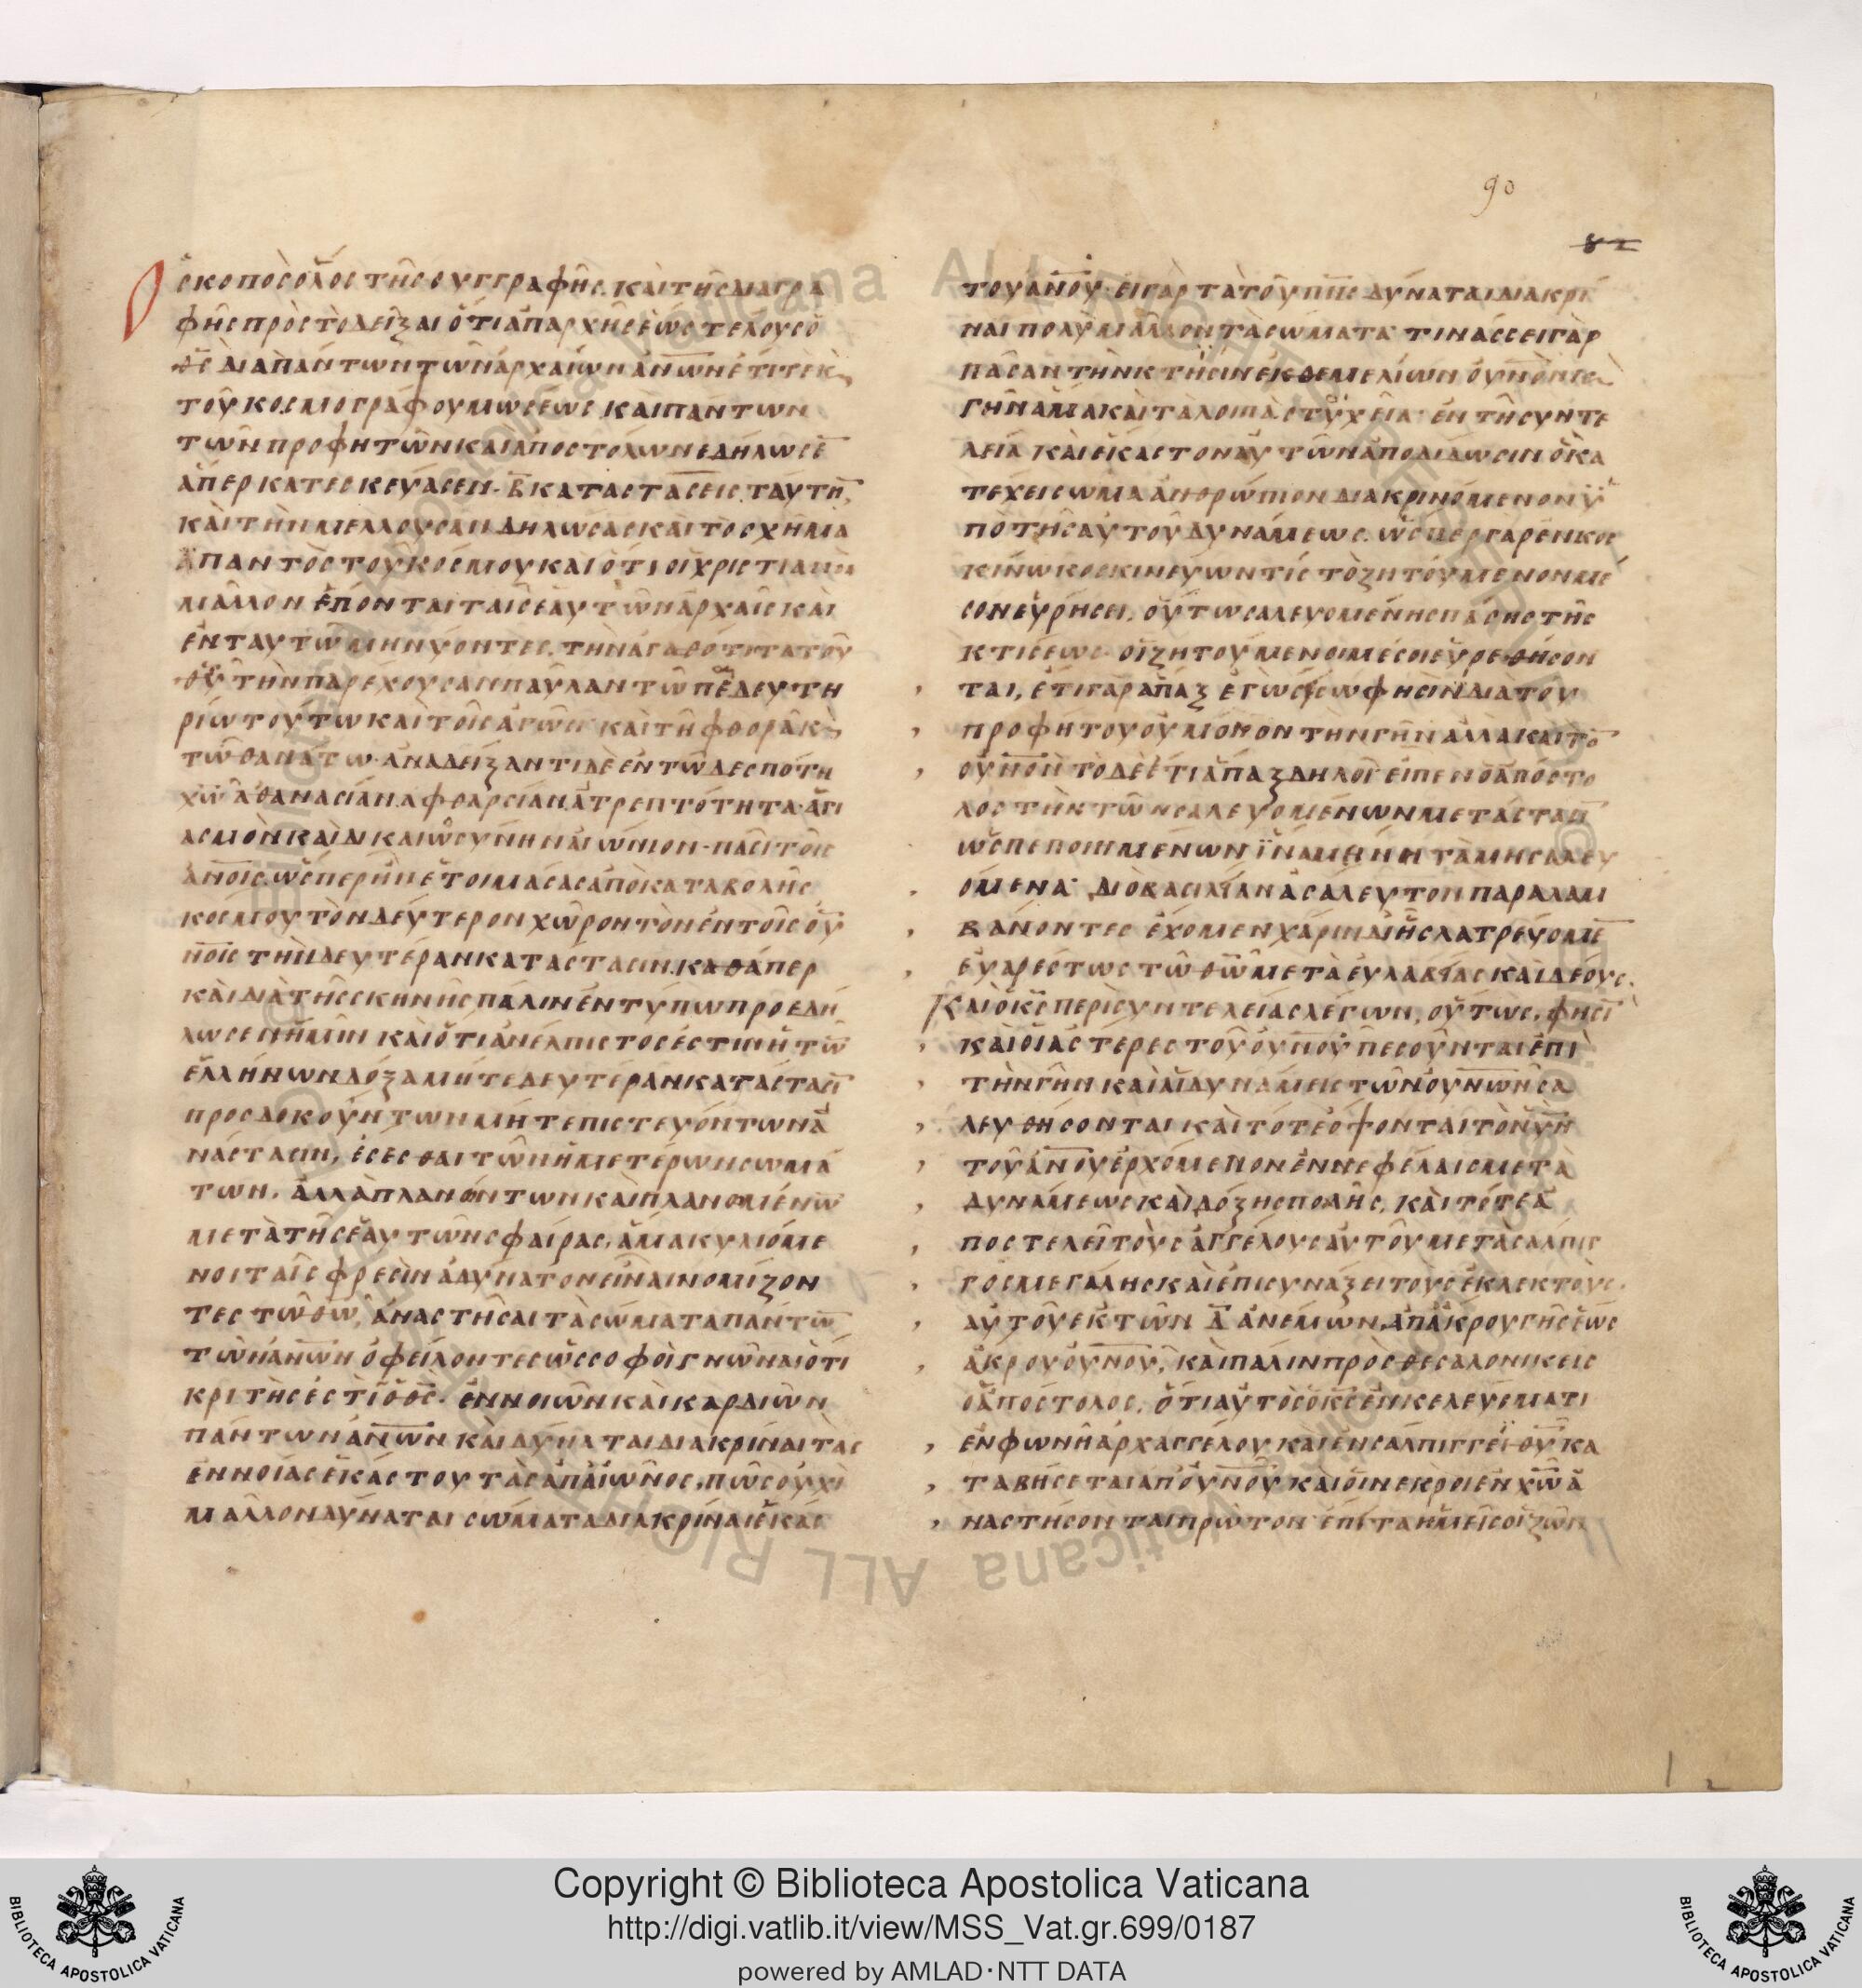 90
82
Ὁ σκοπὸς ὅλος τῆς συγγραφῆς. καὶ τῆς διαγρα
φῆς πρὸς τὸ δεῖξαι ὅτι ἀπαρχῆς ἕως τέλους ὁ
θ̅ς̅ διαπάντων τῶν ἀρχαίων ἀν̅ω̅ν ἔτι τε κ̀
τοῦ κοσμογράφου μωσέως καὶ πάντων
τῶν προφητῶν καὶ ἀποστόλων ἐδήλωσε̅
ἅπερ κατεσκεύασεν. β̅ καταστάσεις. ταύτη̅
καὶ τὴν μέλλουσαν δηλώσας καὶ τὸ σχῆμα
ἅπαντος τοῦ κόσμου καὶ ὅτι οἱ χριστιανοὶ
μᾶλλον ἕπονται ταῖς ἑαυτῶν ἀρχαῖς καὶ
ἐν ταυτῶ μηνύοντες. τὴν ἀγαθότητα τοῦ
θ̅υ̅ τὴν παρέχουσαν παῦλαν τῶ παιδευτη
ρίω τούτω καὶ τοῖς ἀγῶσι καὶ τῆ φθορᾶ κ̀
τῶ θανάτω. ἀναδείξαντι δὲ ἐν τῶ δεσπότη
χ̅ω̅ ἀθανασίαν ἀφθαρσίαν, ἀτρεπτότητα. ἁγι
ασμὸν καὶ δικαιωσύνην αἰώνιον. πᾶσι τοῖς
ἀν̅ο̅ις̅ ὥσπερ ἦν ἑτοιμάσας ἀπὸ καταβολῆς
κόσμου τὸν δεύτερον χῶρον τὸν ἐν τοῖς οὐ̅
ν̅ο̅ι̅ς̅ τὴν δευτέραν κατάστασιν. καθάπερ
καὶ διὰ τῆς σκηνῆς πάλιν ἐν τύπω προεδή
λωσεν ἡμῖν καὶ ὅτι ἀνέλπιστος ἐστιν ἡ τῶ̅
ἑλλήνων δόξα μήτε δευτέραν κατάστασι̅
προσδοκούντων μήτε πιστευόντων ἀ
νάστασιν, ἔσεσθαι τῶν ἡμετέρων σωμά
των. ἀλλὰ πλανώντων καὶ πλανομένω̅
μετὰ τῆς ἑαυτῶν σφαίρας, ἅμα κυλιόμε
νοι ταῖς φρεσὶν ἀδύνατον εἶναι νομίζον
τες τῶ θ̅ω̅, ἀναστῆσαι τὰ σώματα πάντω̅
τῶν ἀν̅ω̅ν ὀφείλοντες ὡς σοφοὶ γνῶναι ὅτι
κριτής ἐστὶ ὁ θ̅ς̅. ἐννοιῶν καὶ καρδιῶν
πάντων ἀν̅ω̅ν καὶ δύναται διακρῖναι τὰς
ἐννοίας ἑκάστου τὰς ἀπαἰῶνος. πῶς οὐχὶ
μᾶλλον δύναται σώματα διακρῖναι ἑκάς
του ἀν̅ο̅υ. εἰ γὰρ τὰ τοῦ π̅ν̅ς̅ δύναται διακρῖ
ναι πολὺ μᾶλλον τὰ σώματα τινάσσει γὰρ
πᾶσαν τὴν κτῆσιν ἐκ θεμελίων οὐν̅ο̅ν τε κ̀
γῆν ἅμα καὶ τὰ λοιπὰ στυχεῖα ἐν τῆ συντε
λεία καὶ ἕκαστον αὐτῶν ἀποδίδωσιν ὃ κα
τέχει σῶμα ἀνθρώπιον διακρινόμενον ὑ
πὸ τῆς αὐτοῦ δυνάμεως. ὥσπερ γὰρ ἐν κος
κίνω κοσκινεύων τίς τὸ ζητούμενον μέ
σον εὑρήσει. οὕτω σαλευομένης πάσης τῆς
κτίσεως οἱ ζητούμενοι μέσοι εὑρεθήσον
ται, ἔτι γὰρ ἅπαξ ἐγὼ σείσω φησὶν διὰ τοῦ
προφήτου οὐ μόνον τὴν γῆν ἀλλὰ καὶ τὸ
οὐν̅ο̅ν τὸ δὲ ἔτι ἅπαξ δηλοῖ εἶπεν ὁ ἀπόστο
λος τὴν τῶν σαλευομένων μετάστασι̅
ὡς πεποιημένων ἵνα μείνη τὰ μὴ σαλευ
όμενα. διὸ βασιλείαν ἀσάλευτον παραλαμ
βάνοντες ἔχομεν χάριν δι ἧς λατρεύομε̅
εὐαρέστως τῶ θ̅ω̅ μετὰ εὐλαβείας καὶ δέους.
Καὶ ὁ κ̅ς̅ περὶ συντελείας λέγων, οὕτως, φησὶ
καὶ οἱ ἀστέρες τοῦ οὐν̅ο̅υ πεσοῦνται ἐπὶ
τὴν γῆν καὶ αἱ δυνάμεις τῶν οὐν̅ω̅ν σα
λευθήσονται καὶ τότε ὄψονται τὸν υ̅ν̅
τοῦ ἀν̅ο̅υ ἐρχόμενον ἐν νεφέλαις μετὰ
δυνάμεως καὶ δόξης πολῆς, καὶ τότε ἀ
ποστελεῖ τοὺς ἀγγέλους αὐτοῦ μετὰ σάλπιγ
γος μεγάλης καὶ ἐπισυνάξει τοὺς ἐκλεκτοὺς.
αὐτοῦ ἐκ τῶν δ̅ ἀνέμων, ἀπ ἄκρου γῆς ἕως
ἄκρου οὐν̅ο̅υ, καὶ πάλιν πρὸς θεσαλονικεις
ὁ ἀπόστολος, ὅτι αὐτὸς ὁ κ̅ς̅ ἐν κελεύσματι
ἐν φωνῆ ἀρχαγγέλου καὶ ἐν σάλπιγγει θ̅υ̅ κα
ταβήσεται ἀπ οὐν̅ο̅υ καὶ οἱ νεκροὶ ἐν χ̅ω̅ ἀ
ναστήσονται πρῶτον ἐπίτα ἡμεῖς οἱ ζῶν
1 2
Copyright © Biblioteca Apostolica Vaticana
http://digi.vatlib.it/view/MSS_Vat.gr.699/0187
powered by AMLAD·NTT DATA
BIBLIOTECA APOSTOLICA VATICANA
BIBLIOTECA APOSTOLICA VATICANA